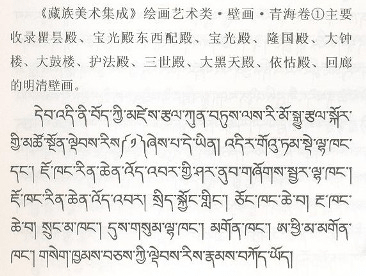 《藏族美术集成》绘画艺术类·壁画·青海卷①主要
收录瞿昙殿、宝光殿东西配殿、宝光殿、隆国殿、大钟
楼、大鼓楼、护法殿、三世殿、大黑天殿、依怙殿、回廊
的明清壁画。
དེབ་འདི་ནི་བོད་ཀྱི་མཛེས་རྩལ་ཀུན་བཏུས་ལས་རི་མོ་སྒྱུ་རྩལ་སྐོར་
གྱི་མཚོ་སྔོན་ལྡེབས་རིས(༡)ཞེས་པ་དེ་ཡིན། འདིར་གོའུ་ཏམ་སྡེ་ལྷ་ཁང་
དང་། ཇོ་ཁང་རིན་ཆེན་འོད་འབར་གྱི་ཤར་ནུབ་གཞོགས་སྦྱར་ལྷ་ཁང་།
ཇོ་ཁང་རིན་ཆེན་འོད་འབར། སྲིད་སྐྱོང་གླིང་། ཅོང་ཁང་ཆེ་བ། རྔ་ཁང་
ཆེ་བ། སྲུང་མ་ཁང་། དུས་གསུམ་ལྷ་ཁང་། མགོན་ཁང་། ཨ་ཕྱི་མ་མགོན་
ཁང་། གསེག་ཁྱམས་བཅས་ཀྱི་ལྡེབས་རིས་རྣམས་བཀོད་ཡོད།